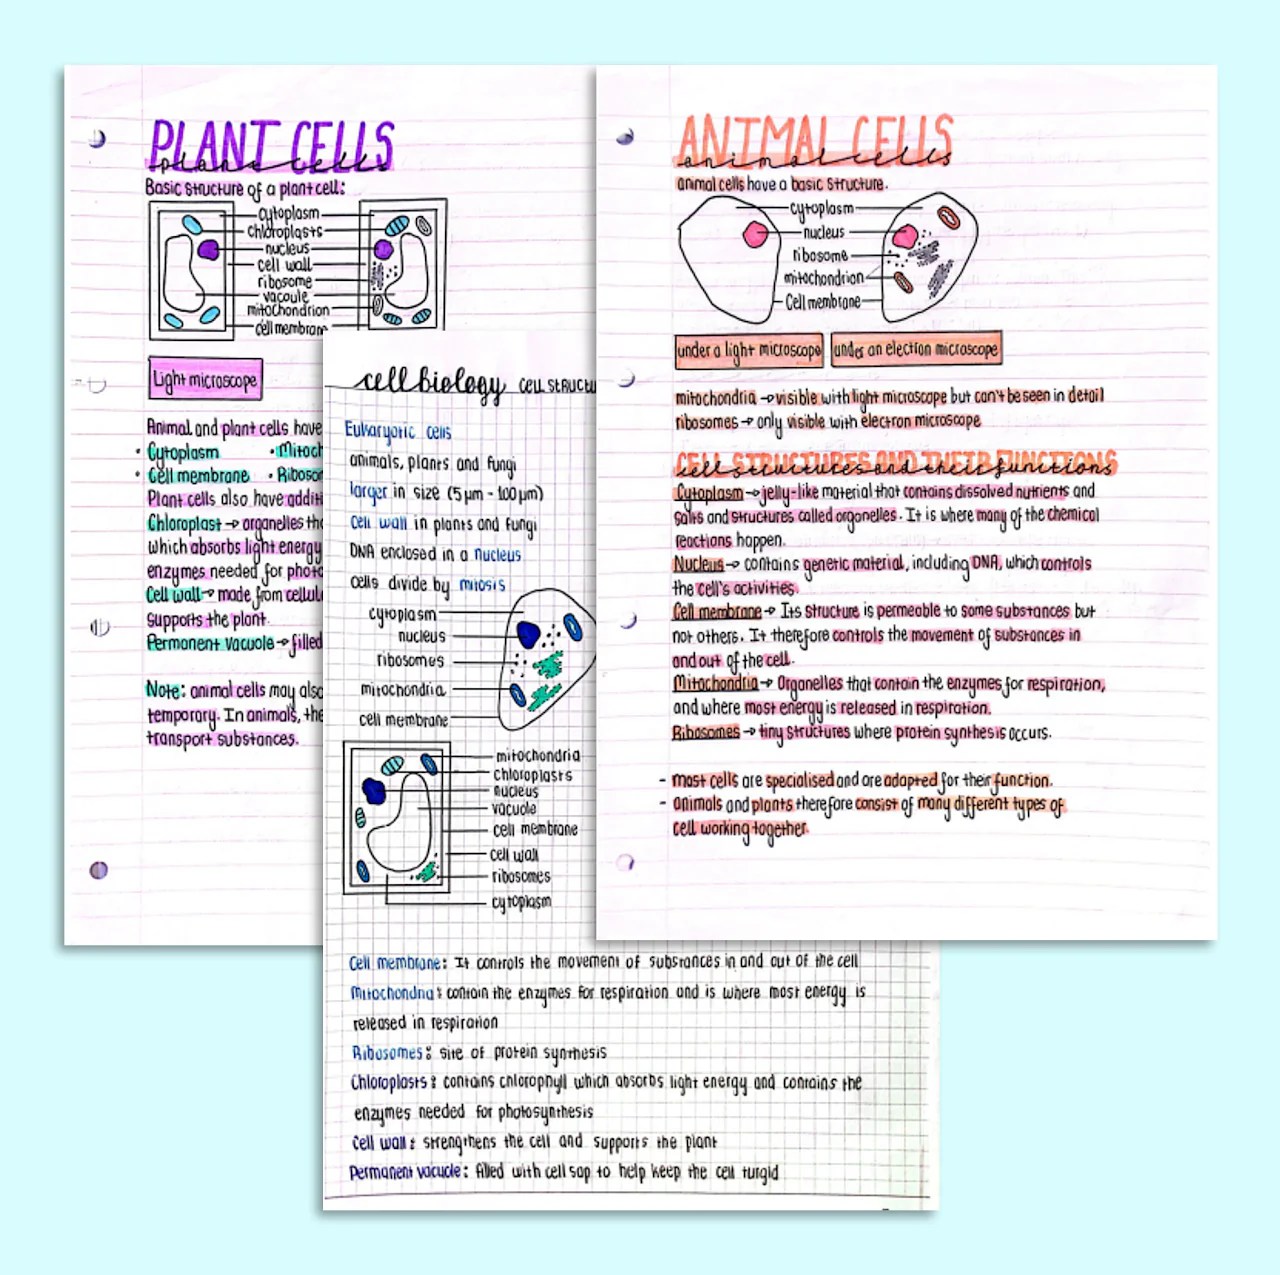 PLANT CELLS
plant cells
Basic structure of a plant cell:
cytoplasm
chloroplasts
nucleus
cell wall
ribosome
vacoule
mitochondrion
cell membrane
Light microscope
Animal and plant cells have
• Cytoplasm • Mitoch
• Cell membrane • Riboso
Plant cells also have additi
Chloroplast → organelles tha
which absorbs light energy
enzymes needed for photo
Cell wall → made from cellulo
supports the plant.
Permanent vacuole → filled
Note: animal cells may also
temporary. In animals, the
transport substances.
cell biology CELL STRUCTU
Eukaryotic cells
animals, plants and fungi
larger in size (5µm - 100µm)
Cell wall in plants and fungi
DNA enclosed in a nucleus
cells divide by mitosis
cytoplasm
nucleus
ribosomes
mitochondria
cell membrane
mitochondria
chloroplasts
nucleus
vacuole
cell membrane
cell wall
ribosomes
cytoplasm
Cell membrane: It controls the movement of substances in and out of the cell
Mitochondria: contain the enzymes for respiration and is where most energy is
released in respiration
Ribosomes: site of protein synthesis
Chloroplasts: contains chlorophyll which absorbs light energy and contains the
enzymes needed for photosynthesis
Cell wall: strengthens the cell and supports the plant
Permanent vacuole: filled with cell sap to help keep the cell turgid
ANIMAL CELLS
animal cells
animal cells have a basic structure.
cytoplasm
nucleus
ribosome
mitochondrion
Cell membrane
under a light microscope
under an electron microscope
mitochondria → visible with light microscope but can't be seen in detail
ribosomes → only visible with electron microscope
CELL STRUCTURES AND THEIR FUNCTIONS
cell structures and their functions
Cytoplasm → jelly-like material that contains dissolved nutrients and
salts and structures called organelles. It is where many of the chemical
reactions happen.
Nucleus → contains genetic material, including DNA, which controls
the cell's activities.
Cell membrane → Its structure is permeable to some substances but
not others. It therefore controls the movement of substances in
and out of the cell.
Mitochondria → Organelles that contain the enzymes for respiration,
and where most energy is released in respiration.
Ribosomes → tiny structures where protein synthesis occurs.
- most cells are specialised and are adapted for their function.
- animals and plants therefore consist of many different types of
cell working together.